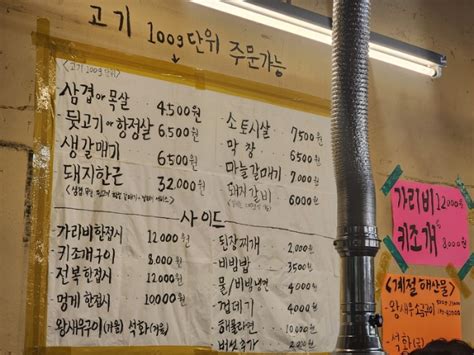 고기 100g단위 주문가능
<고기 100g단위>
삼겹or목살 4500원
뒷고기or항정살 6500원
생갈매기 6500원
돼지한근 32,000원
소토시살 7500원
막창 6500원
마늘갈매기 7000원
돼지갈비 6000원
사이드
가리비한접시 12000원
키조개구이 8,000원
전복한접시 12000원
멍게한접시 10000원
왕새우구이(겨울) 석화(겨울)
된장찌개 2,000원
비빔밥 3500원
물/비빔냉면 4000원
껍데기 4000원
해물라면
버섯추가 2,000원
가리비 12000원
키조개 8,000원
<계절 해산물>
왕새우소금구이
석화